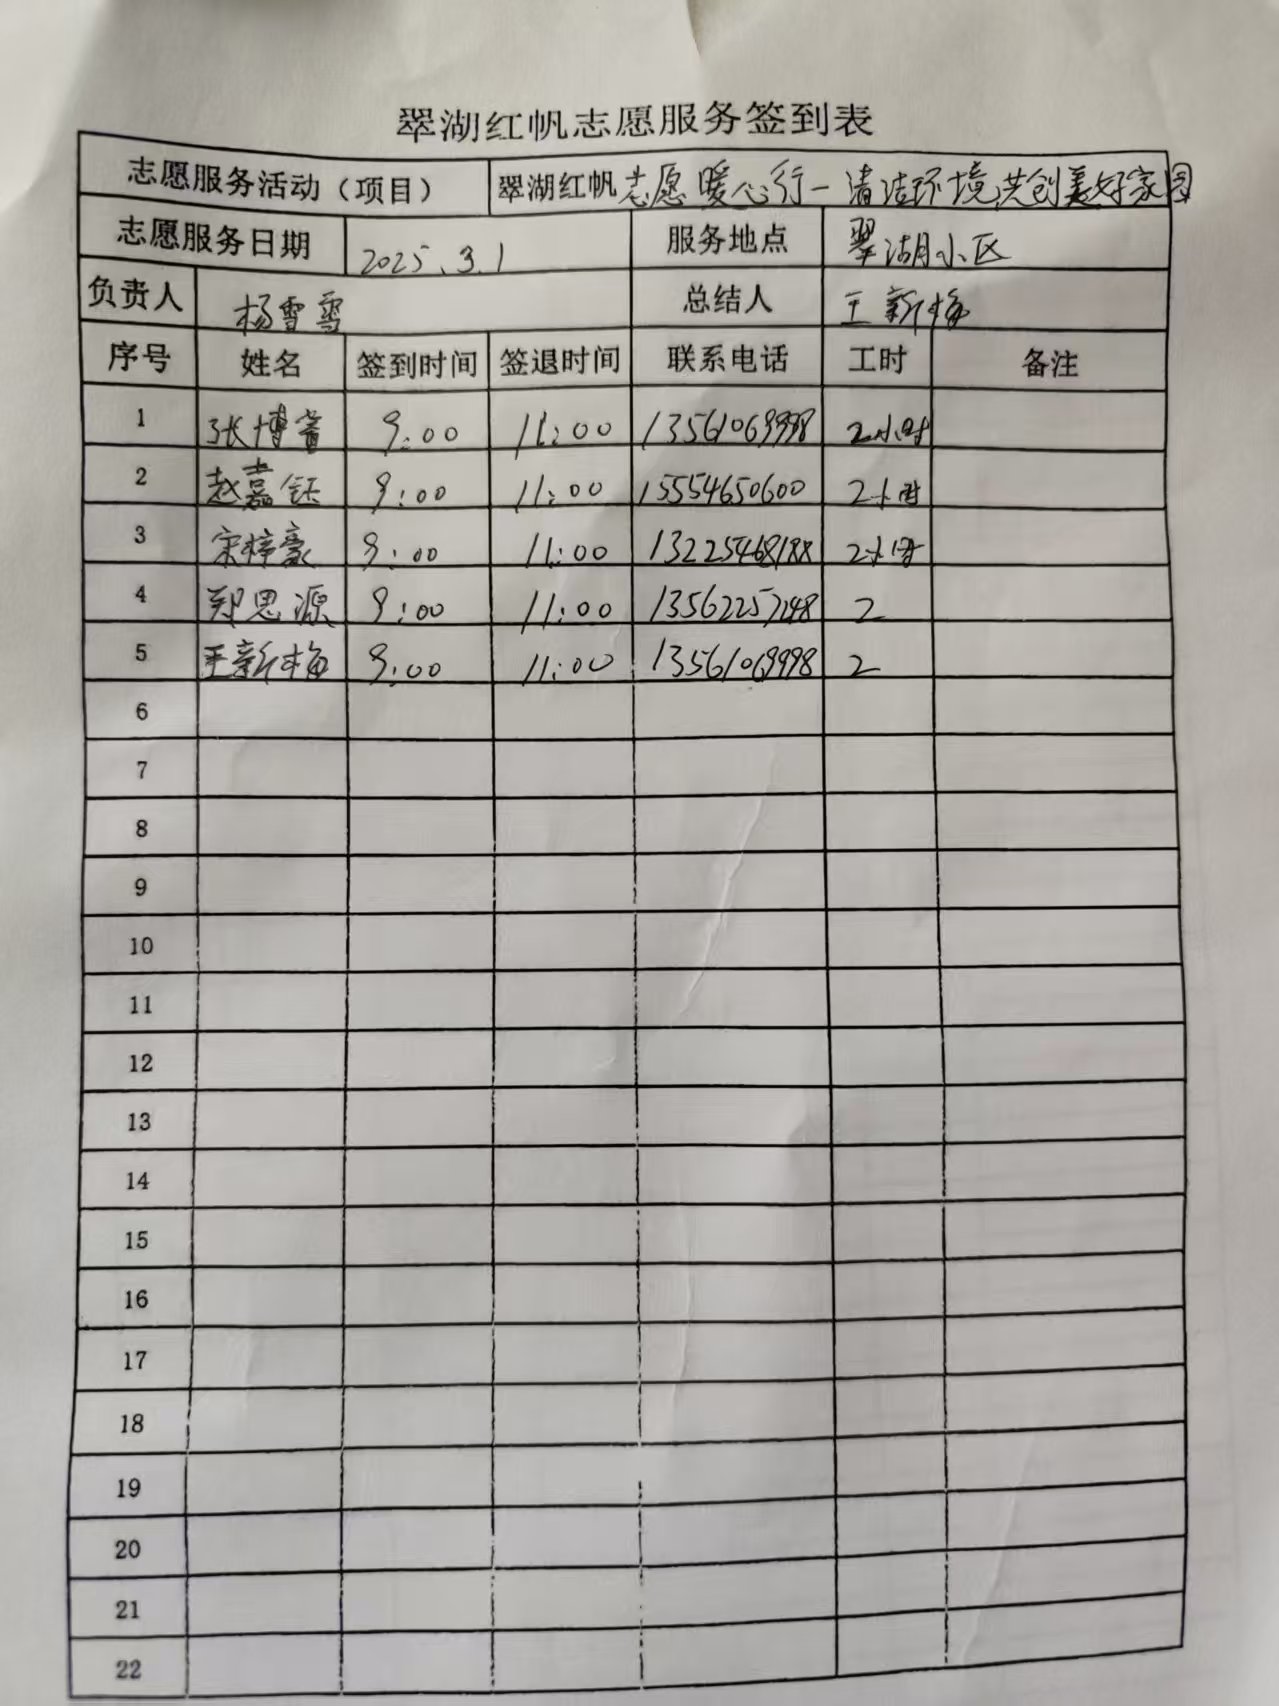 翠湖红帆志愿服务签到表
志愿服务活动（项目） 翠湖红帆志愿暖心行—清洁环境,共创美好家园
志愿服务日期 2025.3.1 服务地点 翠湖小区
负责人 杨雪雪 总结人 王新梅
序号 姓名 签到时间 签退时间 联系电话 工时 备注
1 张博 9:00 11:00 13561069998 2小时
2 赵嘉钰 9:00 11:00 15554650600 2小时
3 宋梓豪 9:00 11:00 13225468188 2小时
4 郑思源 9:00 11:00 13562257248 2
5 王新梅 9:00 11:00 13561069998 2
6
7
8
9
10
11
12
13
14
15
16
17
18
19
20
21
22